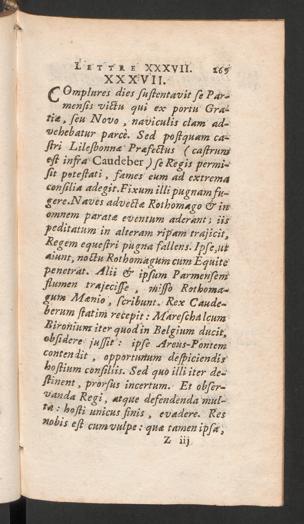 LETTRE XXXVII. 269
XXXVII.
COmplures dies sustentavit se Par-
mensis victu qui ex portu Gra-
tiæ, seu Novo, naviculis clam ad-
vehebatur parcè. Sed postquam ca-
stri Lilesbonna Præfectus (castrum
est infra Caudeber) se Regis permi-
sit potestati, fames eum ad extrema
consilia adegit. Fixum illi pugnam fu-
gere. Naves advectæ Rothomago & in
omnem paratæ eventum aderant; iis
peditatum in alteram ripam trajicit,
Regem equestri pugna fallens. Ipse, ut
aiunt, noctu Rothomagum cum Equite
penetrat. Alii & ipsum Parmensem
flumen trajecisse, misso Rothoma-
gum Manio, scribunt. Rex Caude-
berum statim recepit: Mareschalcum
Bironium iter quod in Belgium ducit,
obsidere jussit: ipse Arcus-Pontem
contendit, opportunum despiciendis
hostium consiliis. Sed quo illi iter de-
stinent, prorsus incertum. Et obser-
vanda Regi, atque defendenda mul-
ta: hosti unicus finis, evadere. Res
nobis est cum vulpe: quæ tamen ipsa,
Z iij